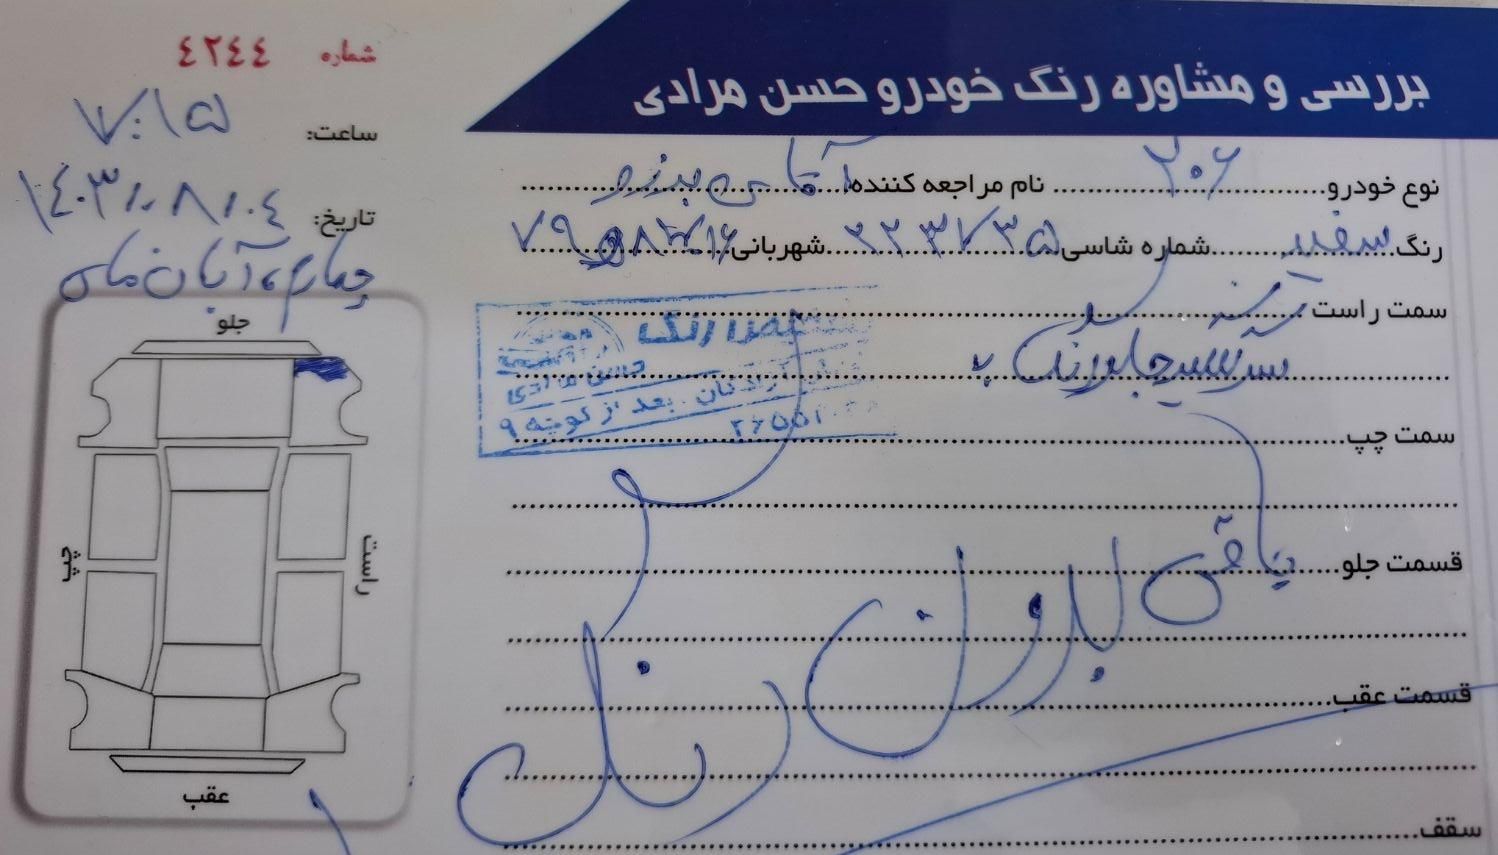 بررسی و مشاوره رنگ خودرو حسن مرادی
شماره ٤٢٤٤
ساعت: ۷:۱۵
تاریخ: ۱۴۰۳/۰۸/۰۴
چهارم آبان ماه
نوع خودرو ۲۰۶ نام مراجعه کننده آقای
رنگ سفید شماره شاسی ۲۲۳۷۳۵ شهربانی
سمت راست
جلو رنگ
رنگ
حسن مرادی
آزادگان بعد از کوچه ۹
سمت چپ
قسمت جلو باقی بدون رنگ
قسمت عقب
سقف
جلو
چپ
راست
عقب